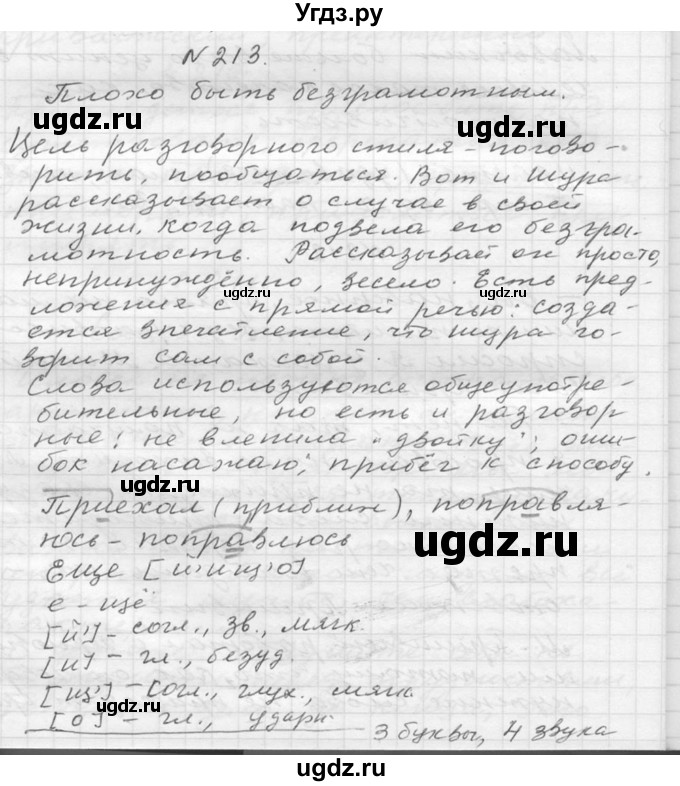 Угдз.ру
N 213.
Плохо быть безграмотным.
ugdz.ru ugdz.ru
Цель разговорного стиля - погово-
рить, пообщаться. Вот и Шура
рассказывает о случае в своей
жизни, когда подвела его безгра-
мотность. Рассказывает он просто,
непринуждённо, весело. Есть пред-
ugdz.ru ugdz.ru
ложения с прямой речью: созда-
ётся впечатление, что Шура го-
ворит сам с собой.
Слова используются общеупотре-
бительные, но есть и разговор
ные: не влепила „двойку"; оши-
бок насажаю; прибёг к способу.
ugdz.ru ugdz.ru
Приехал (приближ), поправля-
юсь - поправлюсь
ugdz.ru
Еще [й'ищ'о]
е - щё
[й'] - согл., зв., мягк.
[и] - гл., безуд.
[щ'] - согл., глух., мягк
ugdz.ru ugdz.ru
[о] - гл., ударн.
3 буквы, 4 звука
ugdz.ru